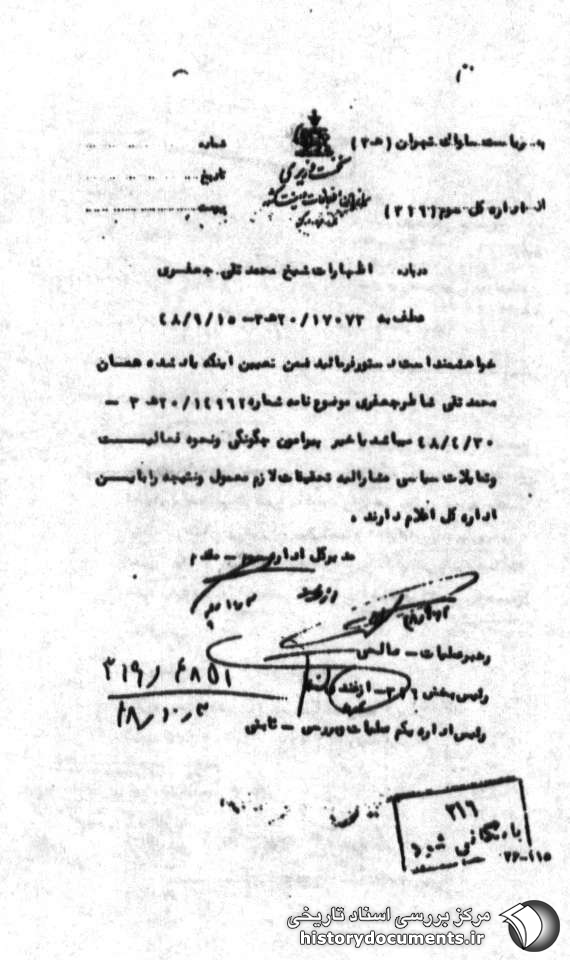 به ریاست ساواک تهران (ه‍ ۳)
شماره
نخست وزیری
تاریخ
سازمان اطلاعات و امنیت کشور
از اداره کل سوم (۳۱۶)
پیوست
درباره اظهارات شیخ محمد تقی جعفری
عطف به ۲۰/۱۷۰۷۳ ه‍ ۳ - ۴۸/۹/۱۵
خواهشمند است دستور فرمائید ضمن تعیین اینکه یاد شده همان
محمد تقی شاطر جعفری موضوع نامه شماره ۲۰/۱۴۹۶۲ ه‍ ۳ -
۴۸/۴/۳۰ میباشد یا خیر پیرامون چگونگی و نحوه فعالیت
و تمایلات سیاسی مشارالیه تحقیقات لازم معمول و نتیجه را باین
اداره کل اعلام دارند .
مدیر کل اداره سوم - مقدم
رهبر عملیات - صالحی
رئیس بخش ۳۱۶ - ازغندی
۳۱۶/ ۴۸۵۱
۴۸/۱۰/۳
رئیس اداره یکم عملیات و بررسی - ثابتی
۳۱۶
بایگانی شود
۲۲-۱۱۵
مرکز بررسی اسناد تاریخی
historydocuments.ir